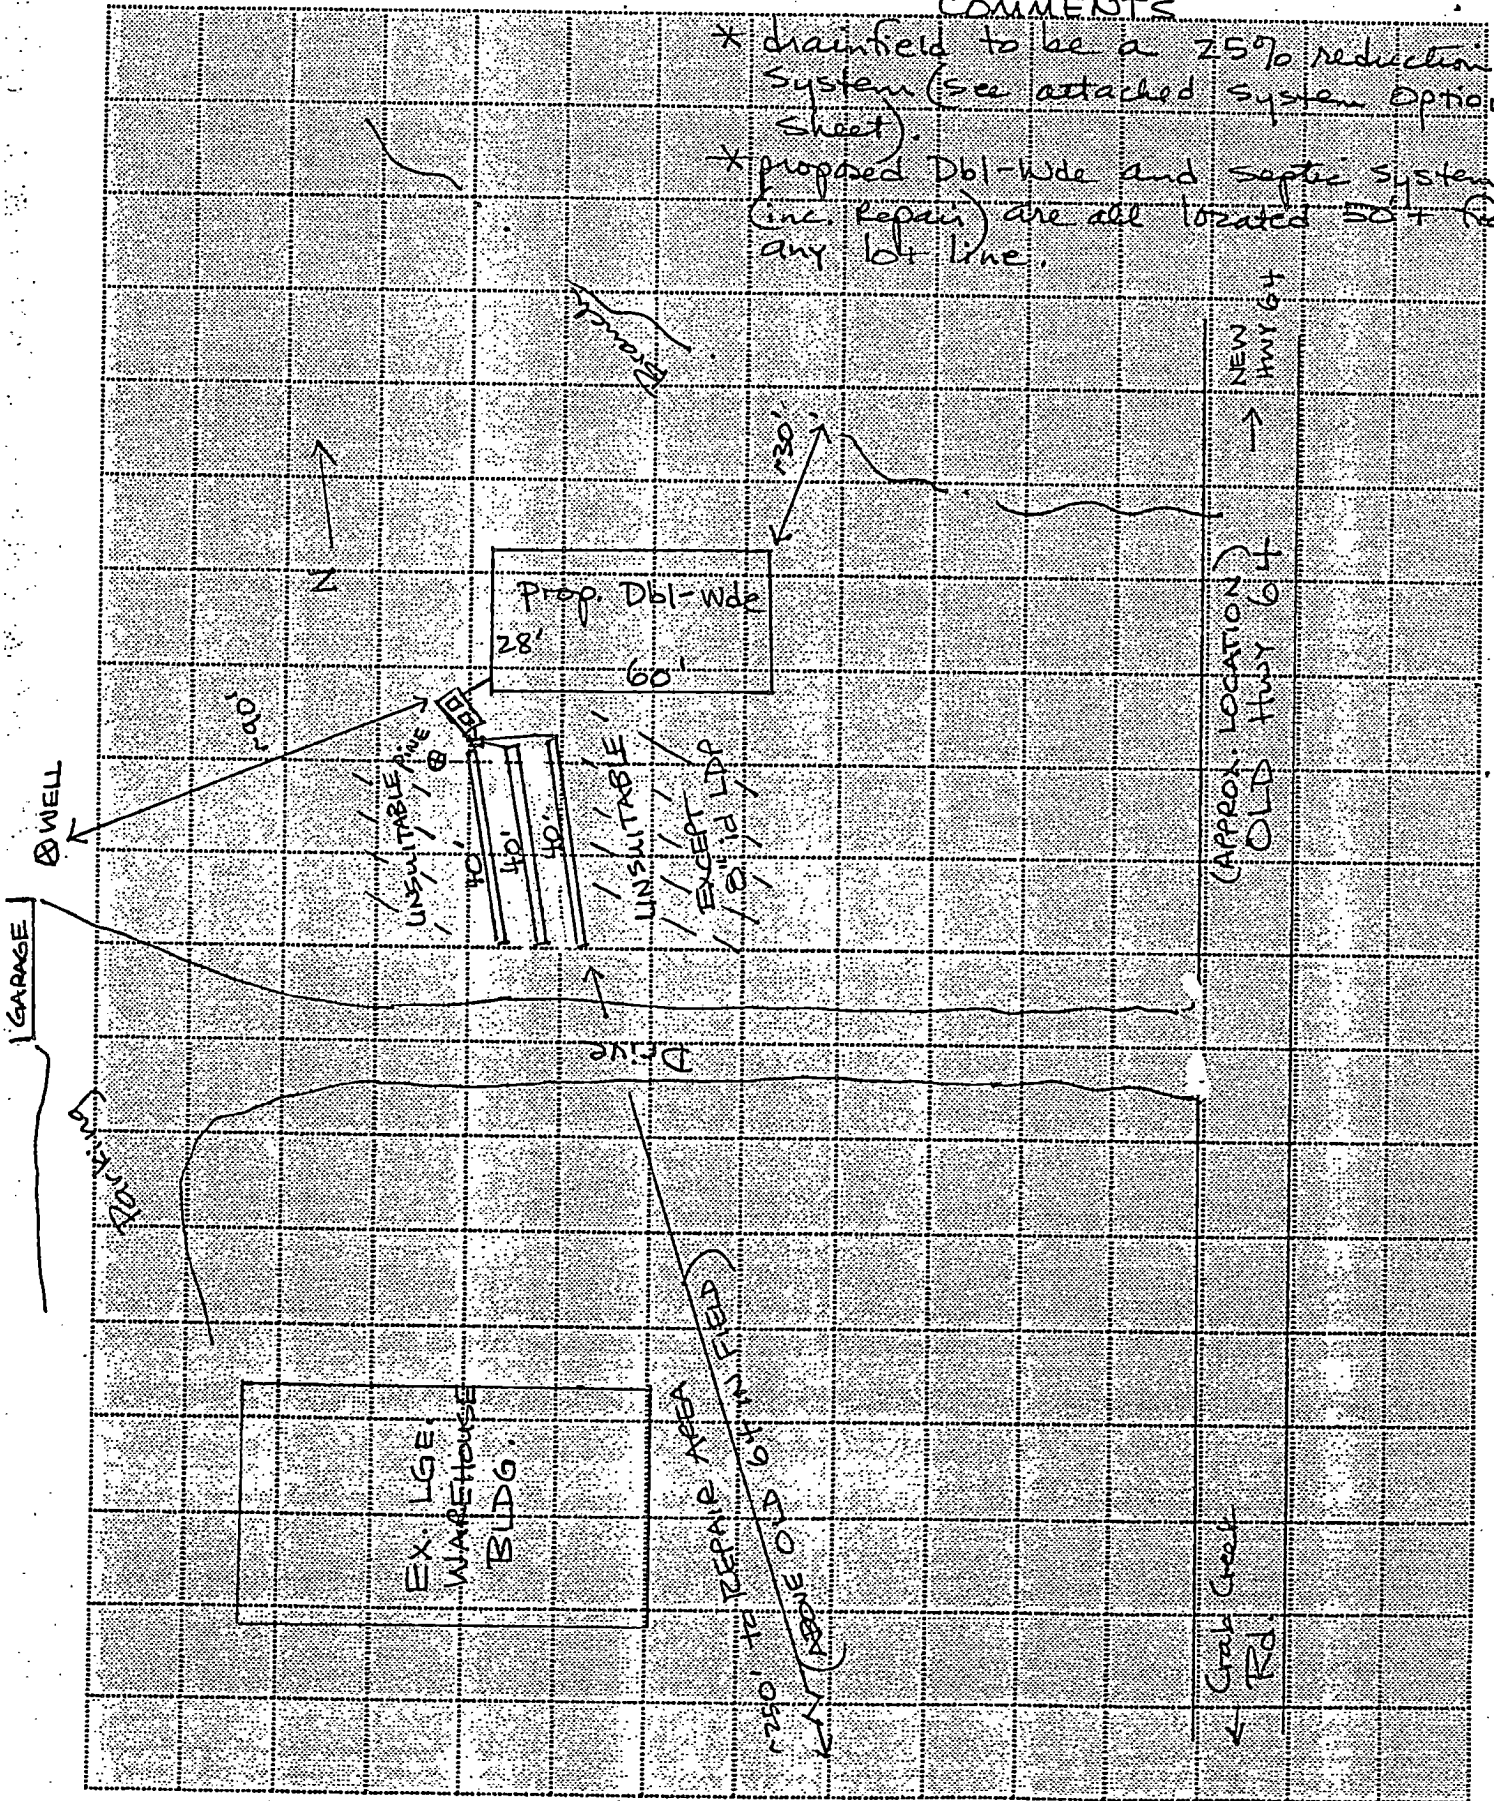 COMMENTS
* drainfield to be a 25% reduction
System (See attached System Option
Sheet).
* proposed Dbl-Wde and Septic System
(inc. Repair) are all located 50'+
any lot line.
Branch
NEW →
HWY 64
~30'
N
Prop. Dbl-Wde
28'
60'
(APPROX. LOCATION)
OLD HWY 64
~90'
WELL
PINE
UNSUITABLE
40'
40'
40'
UNSUITABLE
EXCEPT
LDP
GARAGE
Drive
Parking
EX. LGE.
WAREHOUSE
BLDG.
~250' to REPAIR AREA
(ABOVE OLD 64 IN FIELD)
← Crab Creek
Rd.